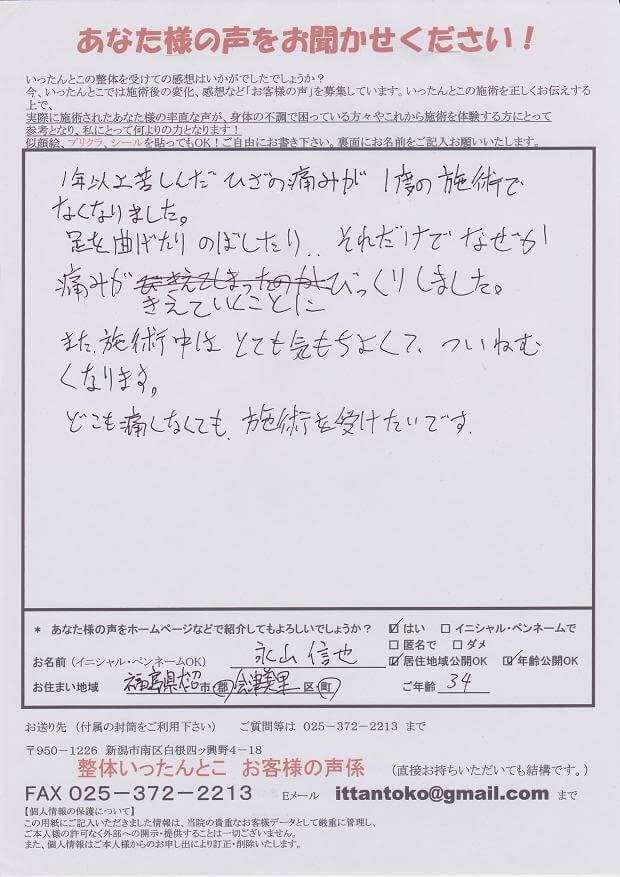 あなた様の声をお聞かせください！
いったんとこの整体を受けての感想はいかがでしたでしょうか？
今、いったんとこでは施術後の変化、感想など「お客様の声」を募集しています。いったんとこの施術を正しくお伝えする
上で、
実際に施術されたあなた様の率直な声が、身体の不調で困っている方々やこれから施術を体験する方にとって
参考となり、私にとって何よりの力となります！
似顔絵、プリクラ、シールを貼ってもOK！ご自由にお書き下さい。裏面にお名前をご記入お願いいたします。
1年以上苦しんだ ひざの痛みが 1度の施術で
なくなりました。
足を曲げたり のばしたり、、それだけで なぜか
痛みが きえてしまったのがびっくりしました。
きえていくことに
また、施術中は とても気もちよくて、ついねむ
くなります。
どこも痛しなくても、施術を受けたいです。
* あなた様の声をホームページなどで紹介してもよろしいでしょうか？ ☑ はい ☐ イニシャル・ペンネームで
☐ 匿名で ☐ ダメ
お名前（イニシャル・ペンネームOK） 永山 信也 ☑ 居住地域公開OK ☑ 年齢公開OK
お住まい地域 福島県大沼 市 郡 会津美里 区 町 ご年齢 34
お送り先 （付属の封筒をご利用下さい） ご質問等は 025－372－2213 まで
〒950－1226 新潟市南区白根四ッ興野4－18
整体いったんとこ お客様の声係 （直接お持ちいただいても結構です。）
FAX 025－372－2213 Eメール ittantoko@gmail.com まで
【個人情報の保護について】
この用紙にご記入いただきました情報は、当院の貴重なお客様データとして厳重に管理し、
ご本人様の許可なく外部への開示・提供することは一切ございません。
また、個人情報はご本人様からのお申し出により訂正・削除いたします。